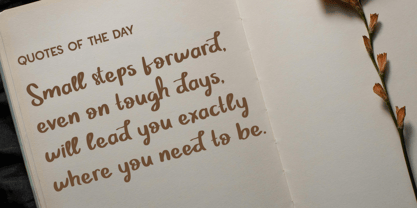 QUOTES OF THE DAY
Small steps forward,
even on tough days,
will lead you exactly
where you need to be.